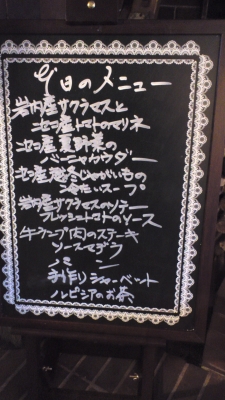 今日のメニュー
岩内産サクラマスと
北広産トマトのマリネ
北広産夏野菜の
バーニャカウダー
北広産越冬じゃがいもの
冷たいスープ
岩内産サクラマスのソテー
フレッシュトマトのソース
牛ランプ肉のステーキ
ソースマデラ
パン
手作りシャーベット
ルピシアのお茶